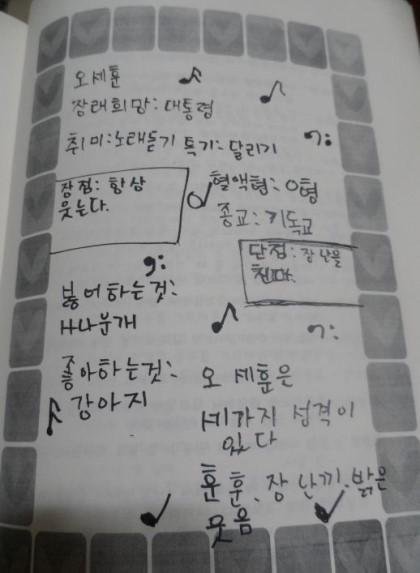 오세훈
장래희망:대통령
취미:노래듣기 특기:달리기
장점: 항상
웃는다.
혈액형:O형
종교:기독교
단점:장난을
친다.
싫어하는것:
좋아하는것:
강아지
오 세훈은
세가지 성격이
있다
훈훈, 장난끼, 밝은
웃음